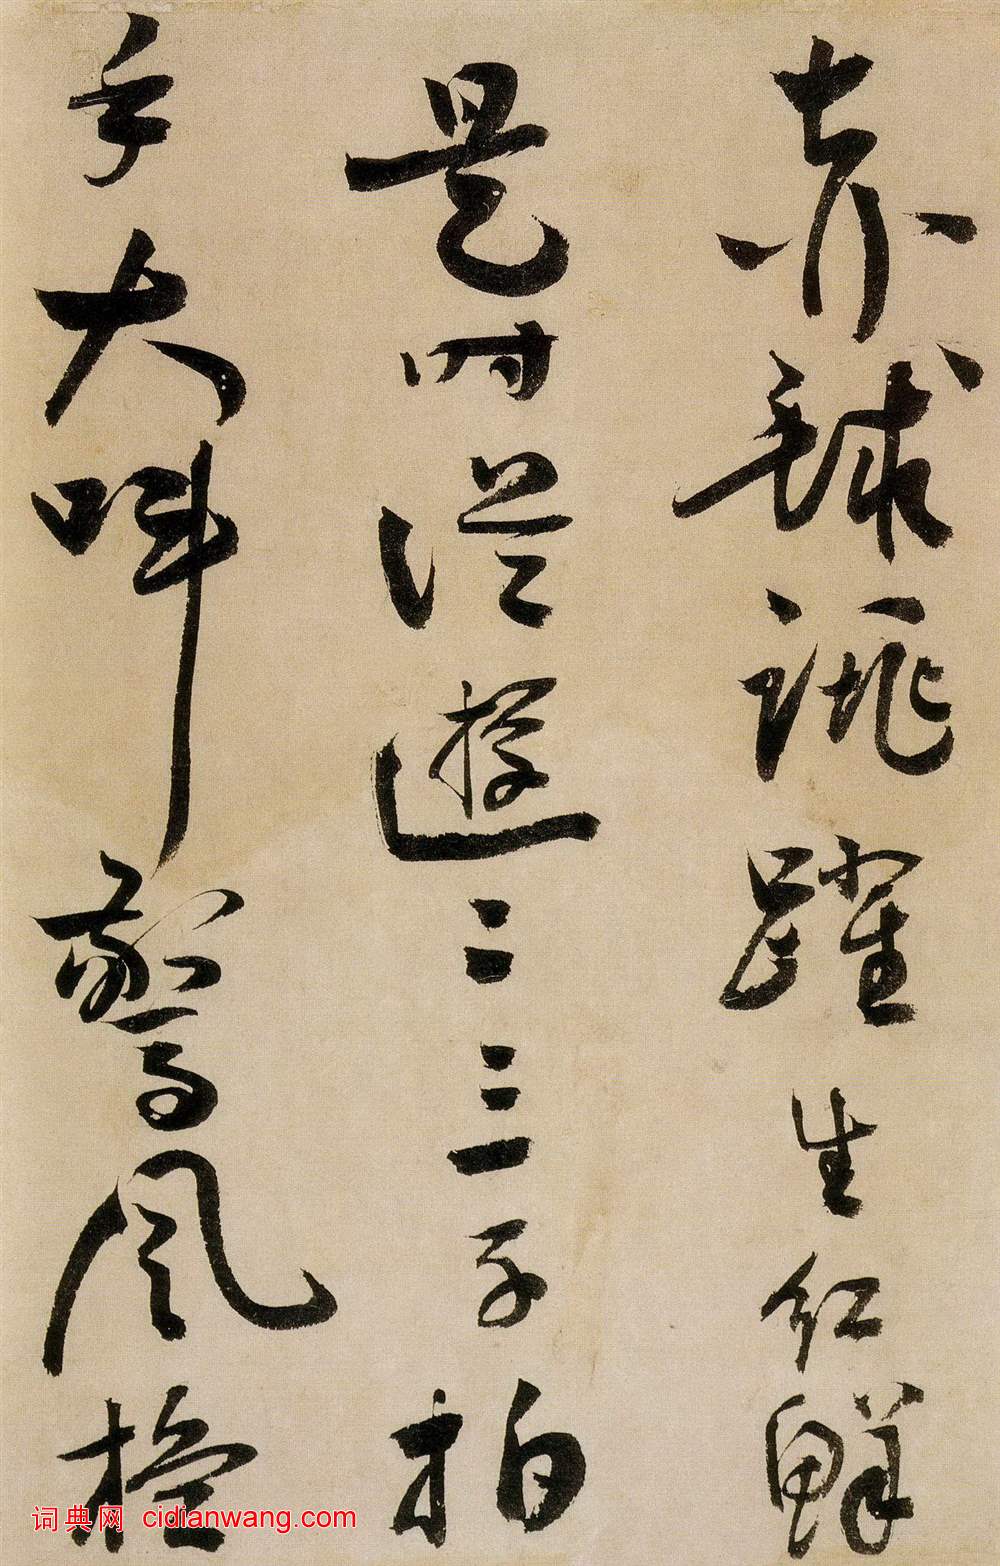 赤毬跳躍生紅鮮
是時從遊二三子拍
手大呌驚風
词典网 cidianwang.com